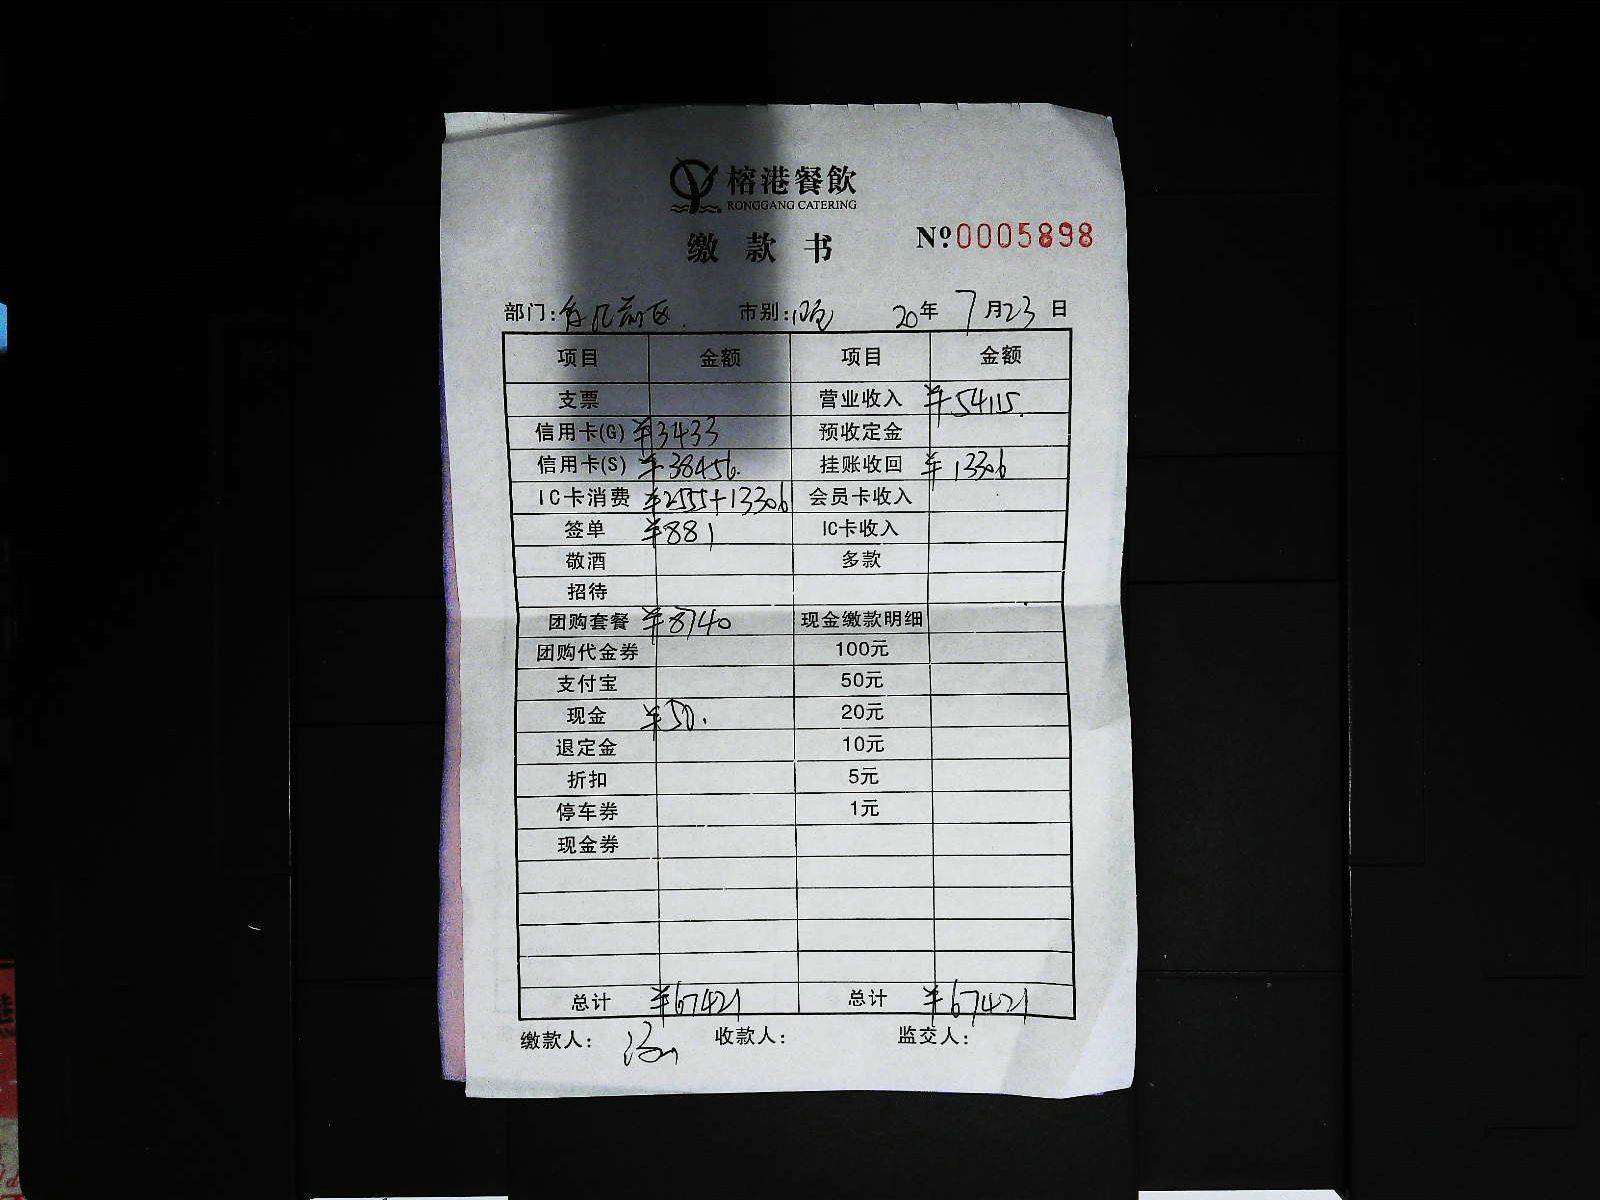 榕港餐飲
RONGGANG CATERING
缴款书 Nº0005898
部门: 市别: 20年 7月23日
项目 金额 项目 金额
支票 营业收入 ¥54115.
信用卡(G) ¥3433 预收定金
信用卡(S) ¥38456. 挂账收回 ¥13306
IC卡消费 ¥2555+13306 会员卡收入
签单 ¥881 IC卡收入
敬酒 多款
招待
团购套餐 ¥8740 现金缴款明细
团购代金券 100元
支付宝 50元
现金 ¥50. 20元
退定金 10元
折扣 5元
停车券 1元
现金券
总计 ¥67421 总计 ¥67421
缴款人: 收款人: 监交人: